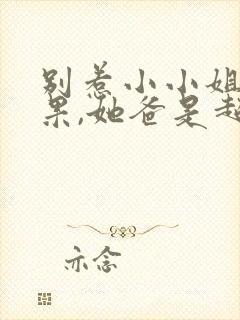 别惹小小姐
果,她爸是超
亦念